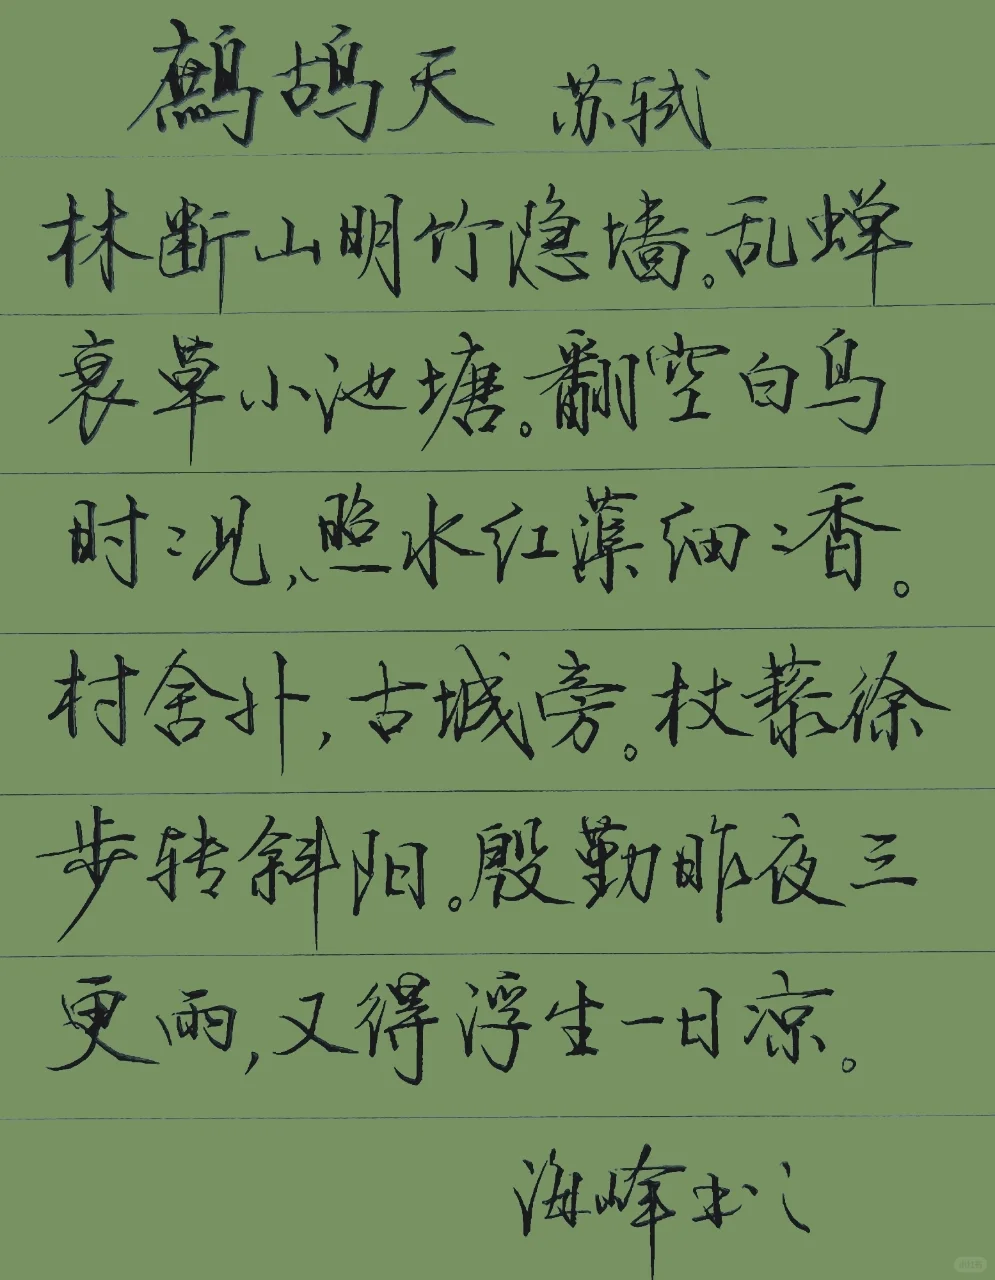 鹧鸪天 苏轼
林断山明竹隐墙。乱蝉
衰草小池塘。翻空白鸟
时〻见,照水红蕖细〻香。
村舍外,古城旁。杖藜徐
步转斜阳。殷勤昨夜三
更雨,又得浮生一日凉。
海峰书之